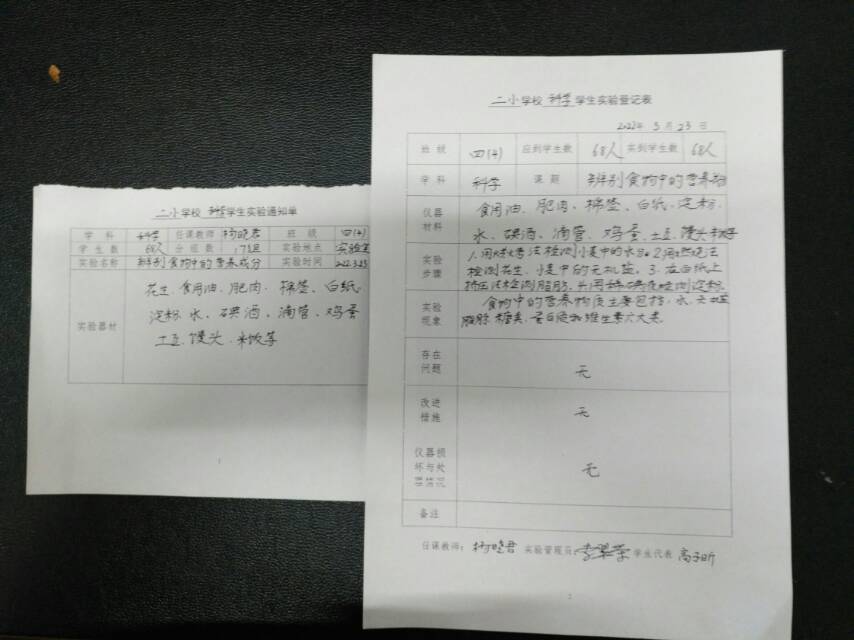 二小学校 科学 学生实验通知单
学 科 科学 任课教师 杨晓君 班 级 四(4)
学生数 68人 分组数 17组 实验地点 实验室
实验名称 辨别食物中的营养成分 实验时间 2022.3.23
实验器材 花生、食用油、肥肉、棉签、白纸
淀粉、水、碘酒、滴管、鸡蛋
土豆、馒头、米饭等
二小学校 科学 学生实验登记表
2022年 3月 23日
班 级 四(4) 应到学生数 68人 实到学生数 68人
学 科 科学 课 题 辨别食物中的营养
仪器材料 食用油、肥肉、棉签、白纸、淀粉、
水、碘酒、滴管、鸡蛋、土豆、馒头
实验步骤 检测小麦中的水分。2.用燃烧法
检测花生、小麦中的无机盐。3.在白纸上
挤压法检测脂肪。4.用 碘酒检测淀粉。
实验现象 食物中的营养物质主要包括:水、无机盐
脂肪、糖类、蛋白质和维生素六大类。
存在问题 无
改进措施 无
仪器损坏与处理情况 无
备注
任课教师: 杨晓君 实验管理员: 学生代表 高子昕
2